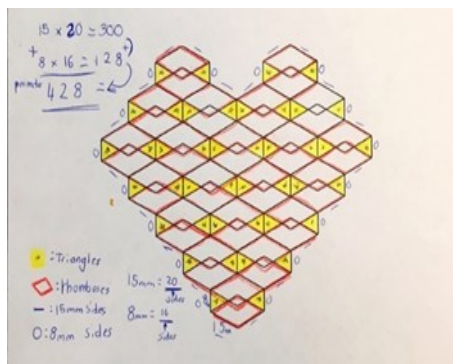 15 x 20 = 300
+ 8 x 16 = 128 +
428 =
: Triangles
: Rhombuses
- : 15mm sides
O : 8mm sides
15mm = 20 sides
8mm = 16 sides
8
15